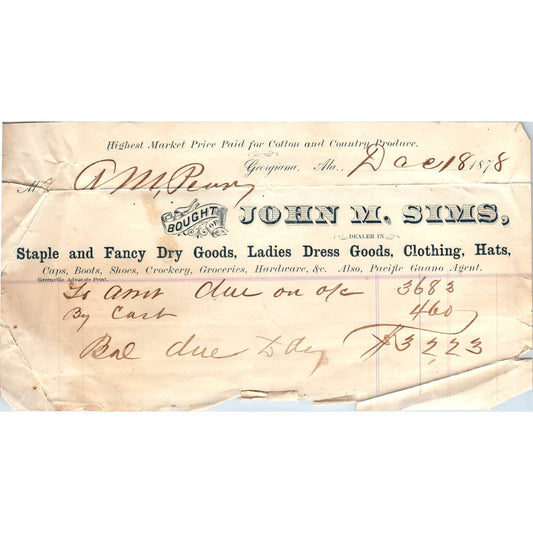 Highest Market Price Paid for Cotton and Country Produce.
Georgiana, Ala., Dec 18 1878
M A M, Perry
BOUGHT OF JOHN M. SIMS,
DEALER IN
Staple and Fancy Dry Goods, Ladies Dress Goods, Clothing, Hats,
Caps, Boots, Shoes, Crockery, Groceries, Hardware, &c. Also, Pacific Guano Agent.
Greenville Advocate Print.
To amt due on a/c 3683
By Cash 460
Bal due $3223